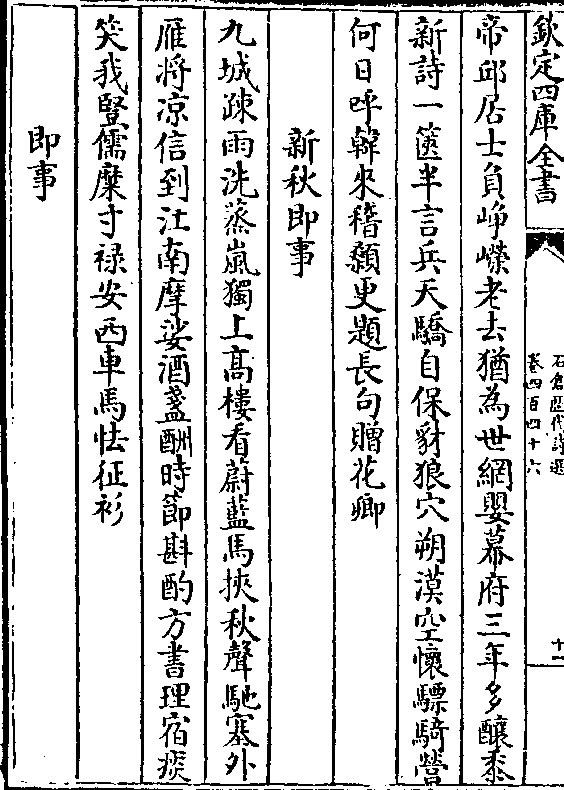 欽定四庫全書
石倉歷代詩選
卷四百四十六
十一
帝邱居士負崢嶸老去猶為世網嬰幕府三年多釀黍
新詩一篋半言兵天驕自保豺狼穴朔漠空懷驃騎營
何日呼韓來稽顙更題長句贈花卿
新秋即事
九城疎雨洗蒸嵐獨上高樓看蔚藍馬挾秋聲馳塞外
雁將凉信到江南摩娑酒盞酬時節斟酌方書理宿痰
笑我豎儒糜寸祿安西車馬怯征衫
即事